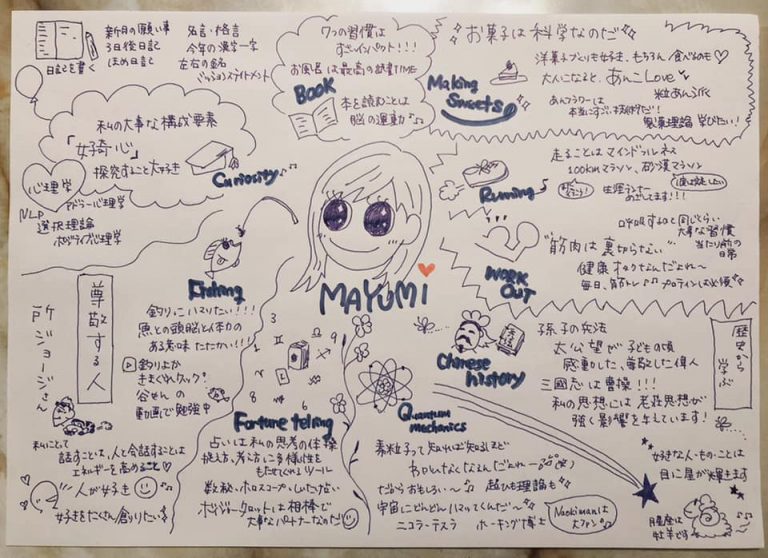 新月の願い事
3日後日記
ほめ日記
日記を書く
名言・格言
今年の漢字一字
左右の銘
ビジョンステイトメント
7つの習慣は
ずーインパクト!!!
お風呂は最高の読書TIME
BOOK
本を読むことは
脳の運動♪
お菓子は科学なのだ
洋菓子づくりも好き、もちろん食べるのも♡
Making
Sweets
大人になると、あんこLOVE
粒あん派
あんフラワーは
製菓理論 学びたい!
私の大事な構成要素
「好奇心」
探究すること大好き
Curiosity♪
心理学
NLP
アドラー心理学
選択理論
ポジティブ心理学
走ることはマインドフルネス
100kmマラソン、砂漠マラソン
Running
生涯ランナー
めざします!!!
WORK
OUT
大事な習慣
当たり前の
日常
"筋肉は裏切らない"
健康オタクなんだよね〜
毎日、筋トレ♪プロテインは必須
MAYUMI
Fishing
釣りにハマりたい!!!
魚との頭脳と体力の
ある意味たたかい!!
釣りよか
きまぐれクック!
谷さんの
動画で勉強中
尊敬する人
所ジョージさん
私にとって
話すことは、人と会話することは
エネルギーを高めること♡
人が好き
好きをたくさん創りたい
Fortune teling
占いは私の思考の体操
捉え方、考え方に多様性を
もたせてくれるツール
数秘、ホロスコープ、しいたけ占い
ボイジャータロットは相棒で
大事なパートナーなのだ
Chinese
history
孫子の兵法
太公望が子どもの頃
感動した、尊敬した偉人
三國志は曹操!!!
私の思想には老荘思想が
強く影響を与えています!
歴史から
学ぶ
Quantum
mechanics
素粒子って知れば知るほど
わかんなくなるんだよね〜
だからおもしろい〜♪ 超ひも理論も
宇宙にどんどんハマってくんだ〜
ニコラ・テスラ ホーキング博士
Naokimanは
大ファン
好きな人・もの・ことは
目に星が輝きます
月星座は
牡羊です